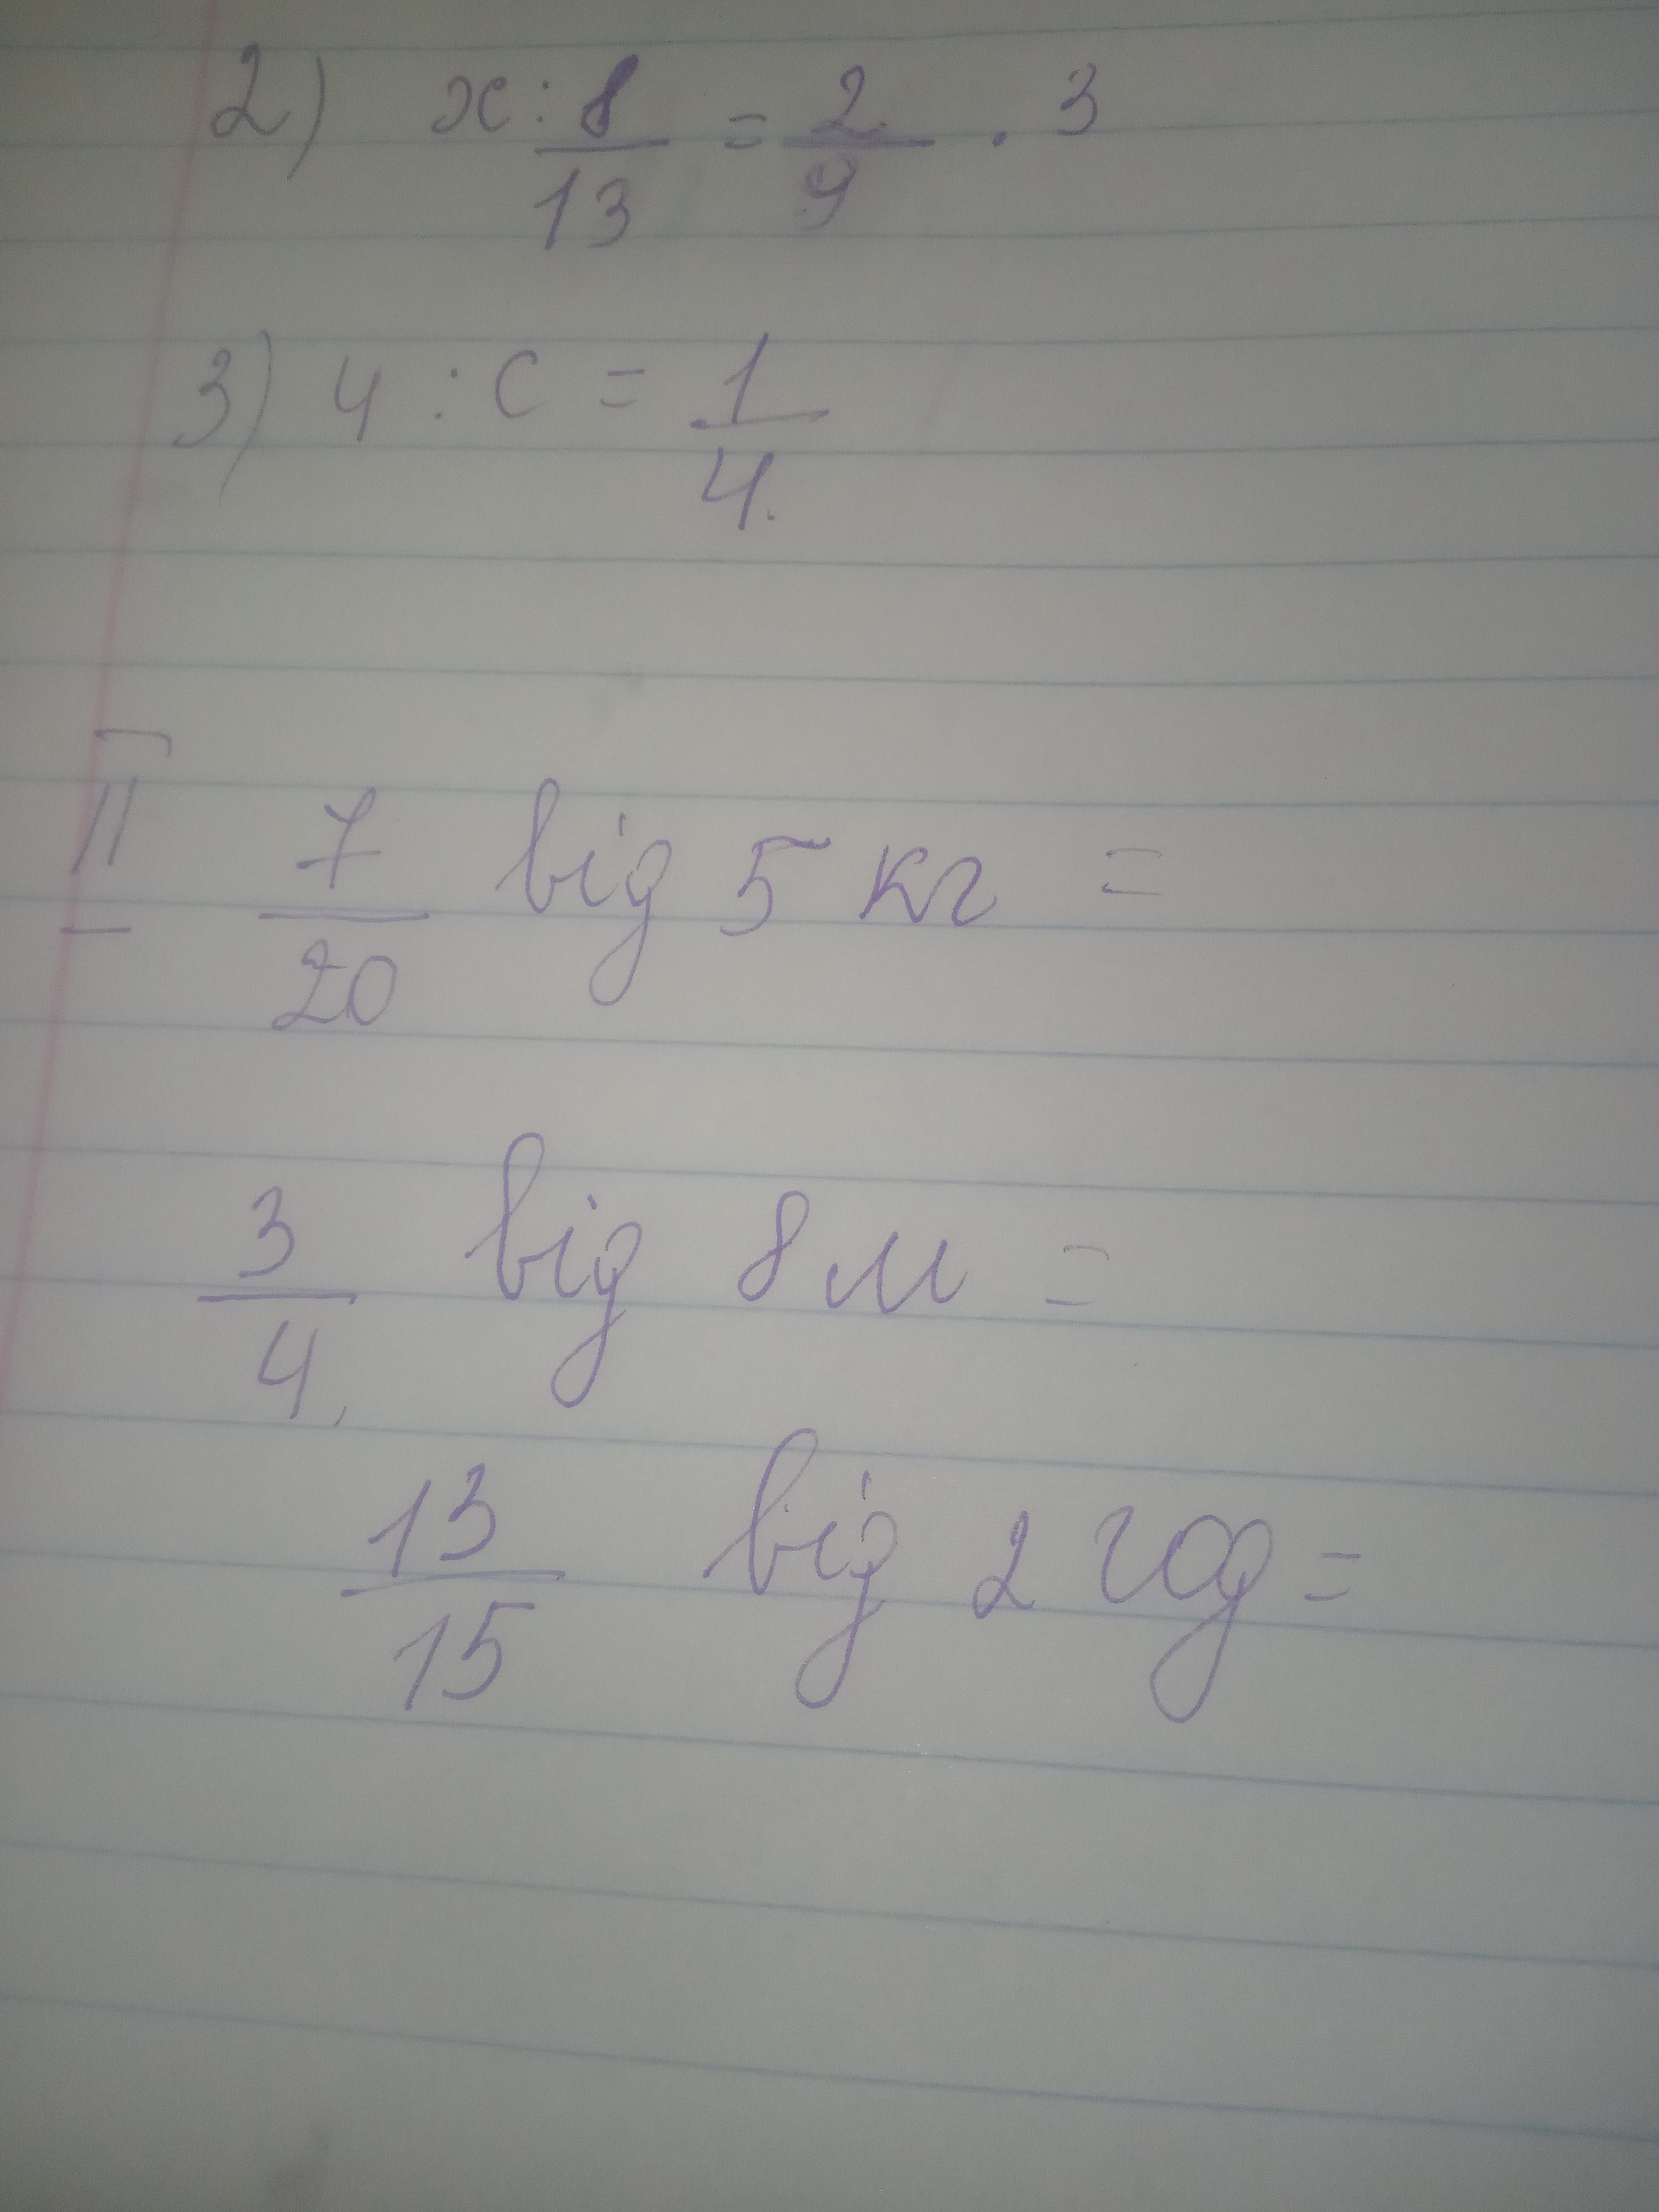 2) x : 8/13 = 2/9 · 3
3) 4 : c = 1/4
II 7/20 від 5 кг =
3/4 від 8 м =
13/15 від 2 год =